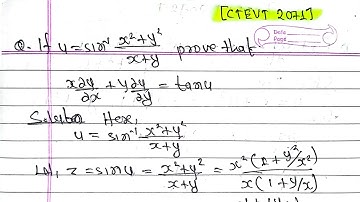 [CTEVT 2071]
Date
Page
Q. If u = sin⁻¹ x²+y²/x+y prove that
x∂u/∂x + y∂u/∂y = tanu
Solution Here,
u = sin⁻¹ x²+y²/x+y
Let, z = sinu = x²+y²/x+y = x²(1+y²/x²)/x(1+y/x)